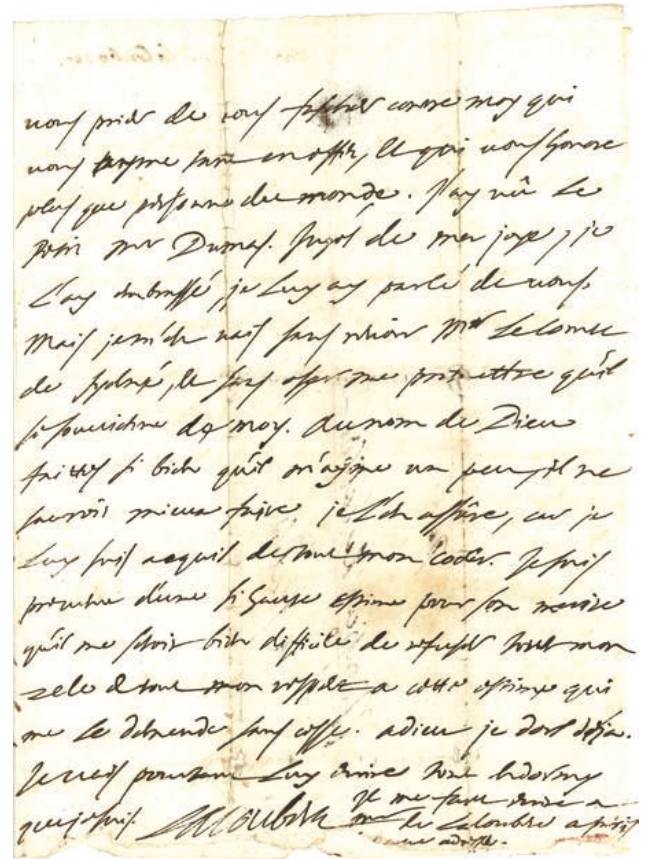 vous prier de vous fascher contre moy qui
vous ayme en effet, et qui vous honore
plus que personne du monde. J'ay vû le
petit Mr Dumas. Jugés de ma joye, je
l'ay embrassé, je luy ay parlé de vous.
Mais je m'en vais sans revoir Mr le Comte
de et sans oser me promettre qu'il
se souvienne de moy. Au nom de Dieu
faittes si bien qu'il m'ayme un peu, il ne
sauroit mieux faire je l'en assûre, car je
luy suis acquis de tout mon coeur. Je suis
d'une si haute estime pour son merite
qu'il me seroit bien difficile de refuser tout mon
zele et tout mon respect a cette estime qui
me le demande sans cesse. adieu je dors deja.
Je vais pourtant luy écrire tout endormy
que je suis. LaLoubere Il me faut écrire a
Mr de la Loubere a Paris
adresse.